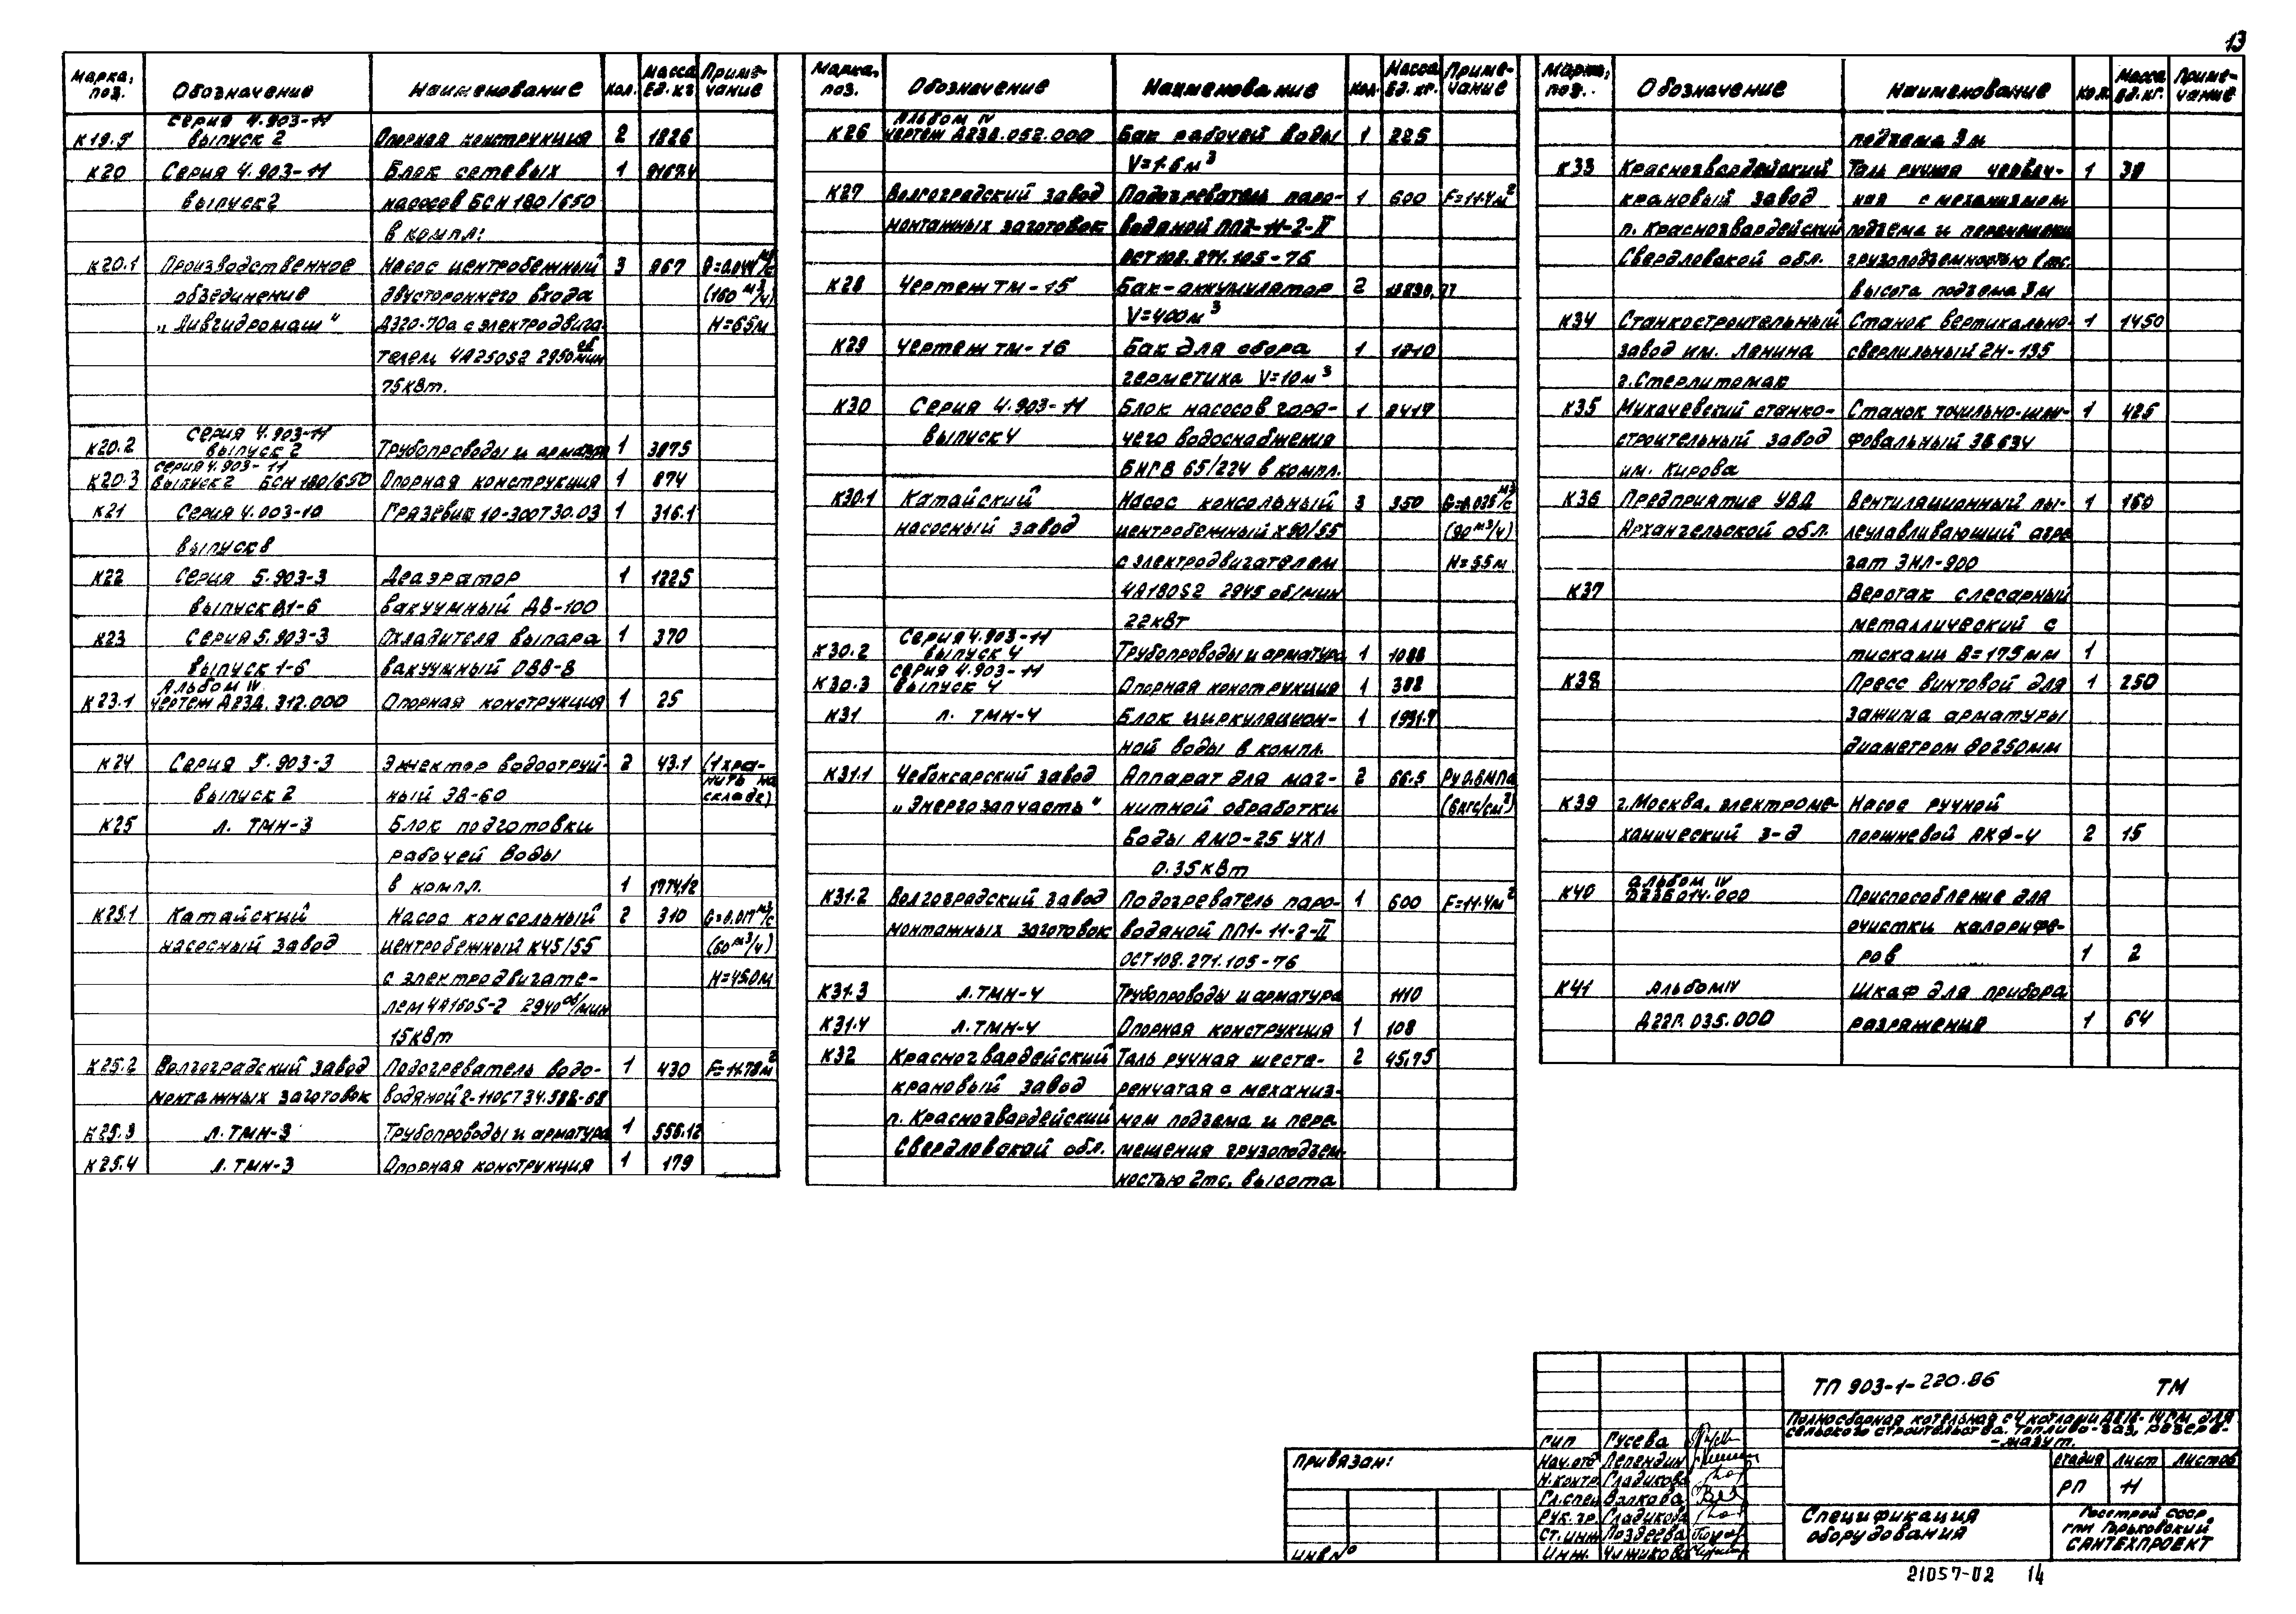 13
Марка, поз. Обозначение Наименование Кол. Масса ед. кг Приме-чание
К19.5 Серия 4.903-11 выпуск 2 Опорная конструкция 2 1826
К20 Серия 4.903-11 Блок сетевых 1
выпуск 2 насосов БСН 180/650
в компл:
К20.1 Производственное Насос центробежный 3 967
объединение двустороннего входа (160 м³/ч)
„Ливгидромаш“ Д320-70а с электродвига- Н=65м
телем 4А250S2 2950 об/мин
75кВт.
К20.2 Серия 4.903-11 выпуск 2 Трубопроводы и арматура 1 3875
К20.3 Серия 4.903-11 выпуск 2 БСН 180/650 Опорная конструкция 1 874
К21 Серия 4.003-10 Грязевик 10-300Т30.03 1 316.1
выпуск 8
К22 Серия 5.903-3 Деаэратор 1 1225
выпуск В1-6 вакуумный ДВ-100
К23 Серия 5.903-3 Охладителя выпара 1 370
выпуск 1-6 вакуумный ОВВ-8
К23.1 Альбом IV чертеж А23Д.312.000 Опорная конструкция 1 25
К24 Серия 5.903-3 Эжектор водоструй- 2 43.1 (1 хра-нить на складе)
выпуск 2 ный ЭВ-60
К25 Л. ТМН-3 Блок подготовки
рабочей воды
в компл. 1
К25.1 Катайский Насос консольный 2 310 G=0.017 м³/с
насосный завод центробежный К45/55 (60 м³/ч)
с электродвигате- Н=45.0м
лем 4А160S-2 2940 об/мин
15кВт
К25.2 Волгоградский завод Подогреватель водо- 1 430
монтажных заготовок водяной 2-11ОСТ34.588-68
К25.3 Л. ТМН-3 Трубопроводы и арматура 1 556.12
К25.4 Л. ТМН-3 Опорная конструкция 1 179
Марка, поз. Обозначение Наименование Кол. Масса ед. кг. Приме-чание
К26 Альбом IV чертеж А23Д.052.000 Бак рабочей воды 1 225
V=1.6м³
К27 Волгоградский завод Подогреватель паро- 1 600 F=11.4м²
монтажных заготовок водяной ПП2-11-2-II
ОСТ 108.271.105-76
К28 Чертеж ТМ-15 Бак-аккумулятор 2
V=400м³
К29 Чертеж ТМ-16 Бак для сбора 1 1210
герметика V=10м³
К30 Серия 4.903-11 Блок насосов горя- 1 2417
выпуск 4 чего водоснабжения
БНГВ 65/224 в компл.
К30.1 Катайский Насос консольный 3 350 G=0.025 м³/с
насосный завод центробежный К90/55 (90 м³/ч)
с электродвигателем Н=55м
4А180S2 2945 об/мин
22кВт
К30.2 Серия 4.903-11 выпуск 4 Трубопроводы и арматура 1 1088
К30.3 Серия 4.903-11 выпуск 4 Опорная конструкция 1 382
К31 Л. ТМН-4 Блок циркуляцион- 1
ной воды в компл.
К31.1 Чебоксарский завод Аппарат для маг- 2 66.5 Ру 0.6МПа
„Энергозапчасть“. нитной обработки (6кгс/см²)
воды АМО-25 УХЛ
0.35кВт
К31.2 Волгоградский завод Подогреватель паро- 1 600 F=11.4м²
монтажных заготовок водяной ПП1-11-2-II
ОСТ 108.271.105-76
К31.3 Л. ТМН-4 Трубопроводы и арматура 1110
К31.4 Л. ТМН-4 Опорная конструкция 1 108
К32 Красногвардейский Таль ручная шесте- 2 45.75
крановый завод ренчатая с механиз-
п. Красногвардейский мом подъема и пере-
Свердловской обл. мещения грузоподъем-
ностью 2тс, высота
Марка, поз. Обозначение Наименование кол. Масса ед. кг. Приме-чание
подъема 3м
К33 Красногвардейский Таль ручная червяч- 1 38
крановый завод ная с механизмом
п. Красногвардейский подъема и перемещения
Свердловской обл. грузоподъемностью 1 тс.
высота подъема 3м
К34 Станкостроительный Станок вертикально- 1 1450
завод им. Ленина сверлильный 2Н-135
г. Стерлитамак
К35 Мукачевский станко- Станок точильно-шли- 1 425
строительный завод фовальный 3Б634
им. Кирова
К36 Предприятие УВД Вентиляционный пы- 1 160
Архангельской обл. леулавливающий агре-
гат ЗИЛ-900
К37 Верстак слесарный
металлический с
тисками В=175мм 1
К38 Пресс винтовой для 1 250
зажима арматуры
диаметром до 250мм
К39 г. Москва, электроме- Насос ручной
ханический з-д поршневой АКФ-4 2 15
К40 Альбом IV Приспособление для
очистки калорифе-
ров 1 2
К41 Альбом IV Шкаф для прибора
Д22Р.035.000 разряжения 1 64
Привязан:
инв №
ГИП Гусева
Нач. отд Лепендин
Н. контр. Гладикова
Гл. спец Волкова
Рук. гр. Гладикова
Ст. инж Поздеева
Инж. Чижикова
ТП 903-1-220.86 ТМ
Полносборная котельная с 4 котлами ДЕ16-14ГМ для
сельского строительства. Топливо-газ, резерв-
-мазут.
стадия лист листов
РП 11
Спецификация
оборудования
Госстрой СССР
ГПИ Горьковский
САНТЕХПРОЕКТ
21057-02 14